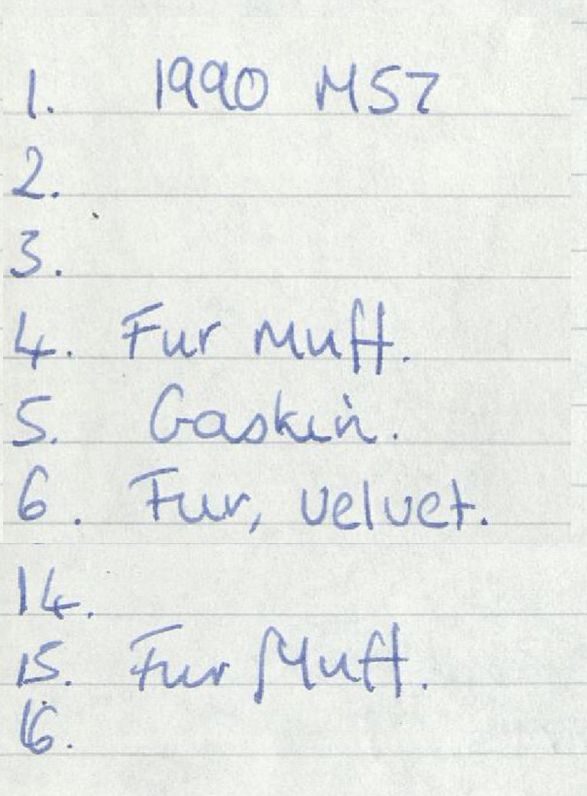 1. 1990 MS7
2.
3.
4. Fur Muff.
5. Gaskin.
6. Fur, velvet.
14.
15. Fur Muff.
16.